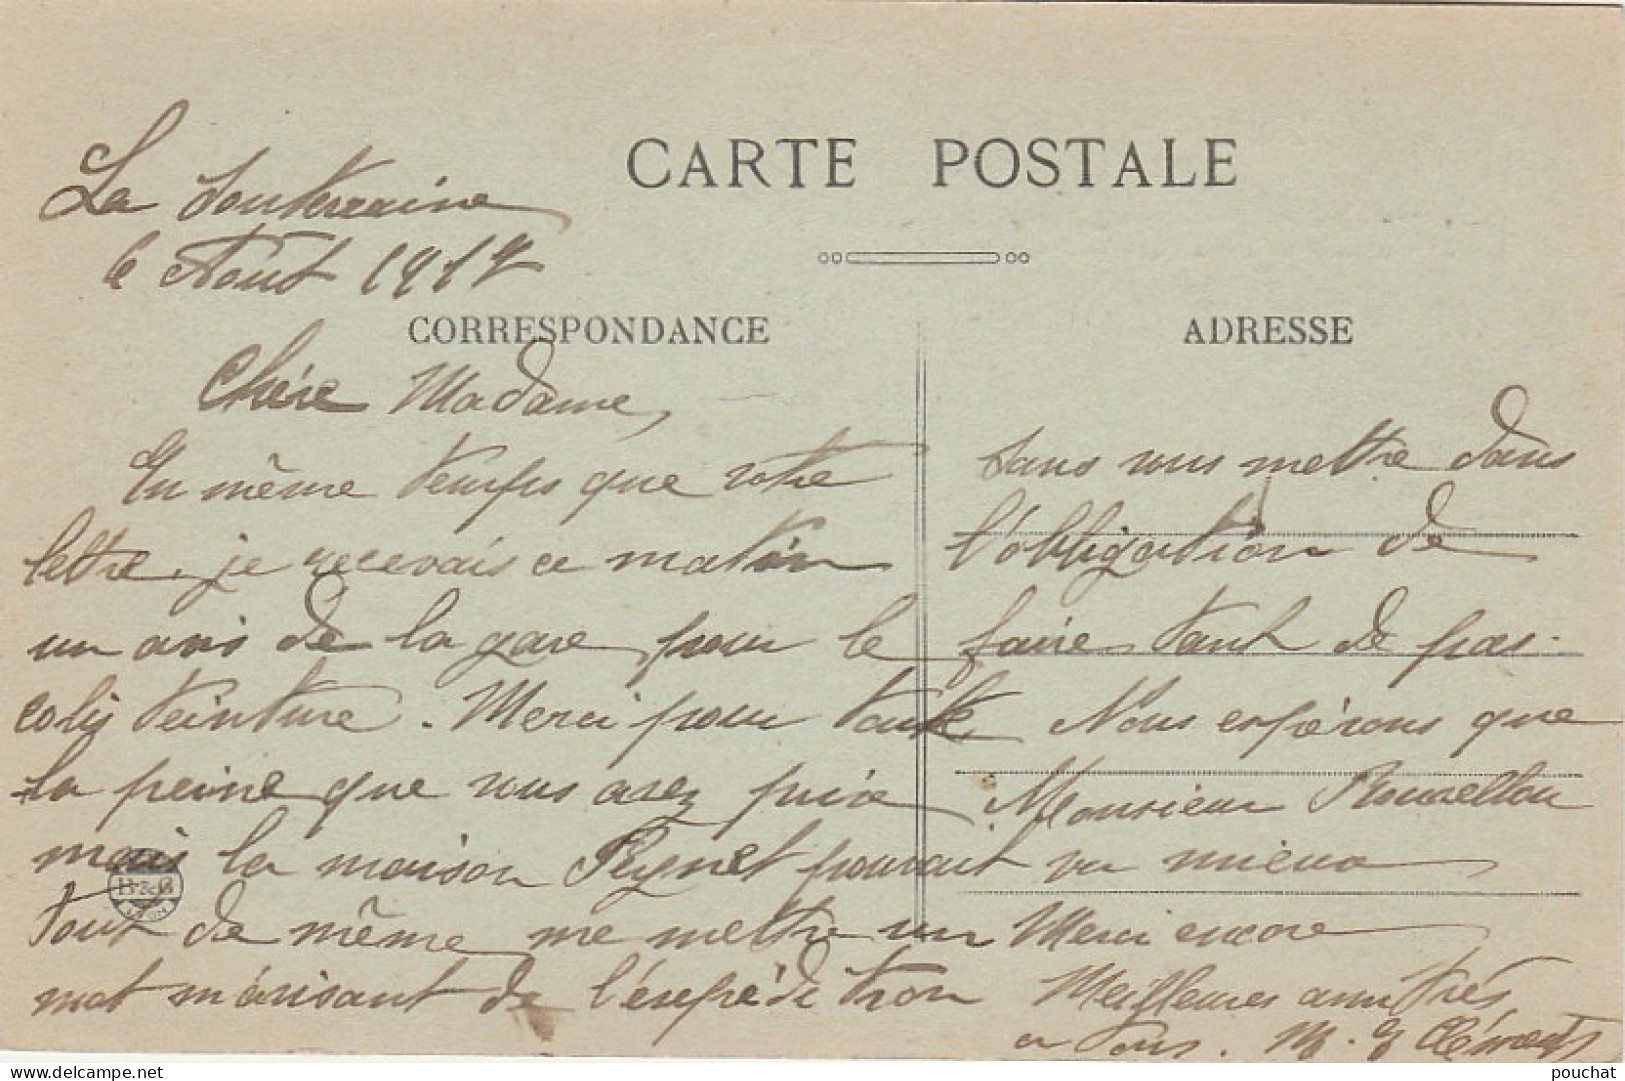 CARTE POSTALE
La Souterraine
6 Août 1917
CORRESPONDANCE
Chère Madame,
En même temps que votre
lettre, je recevais ce matin
un avis de la gare, pour le
colis teinture. Merci pour toute
la peine que vous avez prise
mais la maison Peynet pouvait
tout de même me mettre un
mot m'avisant de l'expédition
ADRESSE
sans vous mettre dans
l'obligation de
faire tant de pas.
Nous espérons que
Monsieur
va mieux
Merci encore
Meilleures amitiés
à tous. M. E Cléments
© delcampe.net
pouchat